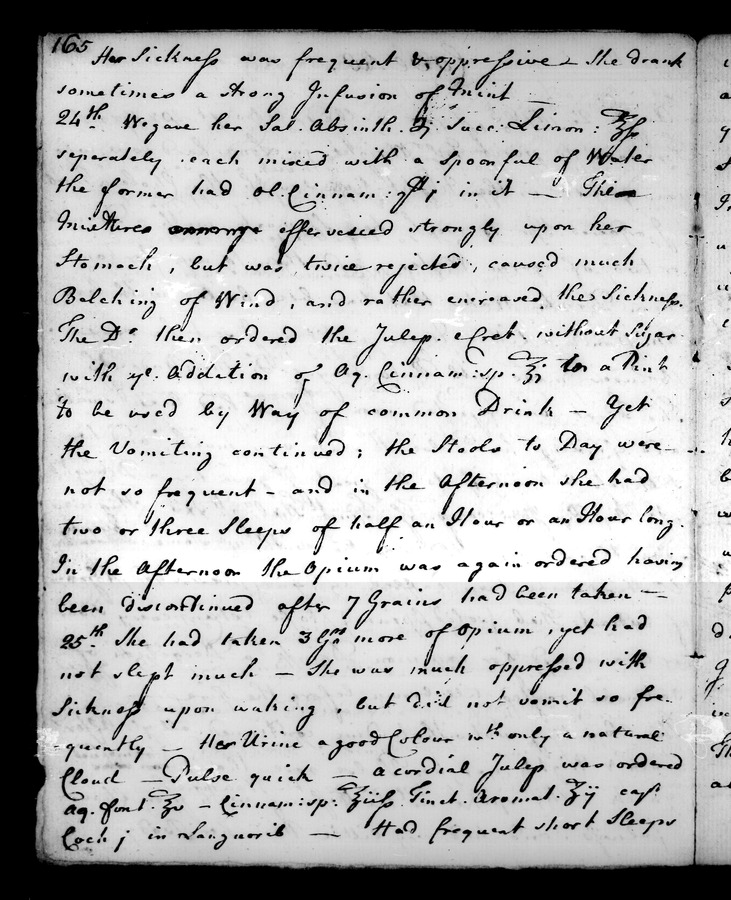 165
Her Sickness was frequent & oppressive - She drank
sometimes a strong Infusion of Mint —
24th. We gave her Sal. Absinth. Ʒj Succ. Limon: ℥ſs
seperately each mixed with a spoonful of Water
the former had Ol. Cinnam: gtt j in it — The
Mixtures effervesced strongly upon her
Stomach, but was twice rejected, caused much
Belching of Wind, and rather encreased the Sickness.
The Dr. then ordered the Julep. e Cret. without Sugar
with ye. addition of Aq. Cinnam: sp. ℥j to a Pint
to be used by Way of common Drink — Yet
the Vomiting continued; the Stools to Day were
not so frequent - and in the Afternoon she had
two or three Sleeps of half an Hour or an Hour long.
In the Afternoon the Opium was again ordered having
been discontinued after 7 Grains had been taken —
25th. She had taken 3 Grs more of Opium, yet had
not slept much — She was much oppressed with
Sickness upon waking, but did not vomit so fre-
-quently — Her Urine a good Colour wth only a natural
Cloud — Pulse quick — a cordial Julep was ordered
Aq. font. ℥v - Cinnam: sp. ℥iiſs Tinct. Aromat. Ʒij capt
Coch j in Languorib — Had frequent short Sleeps